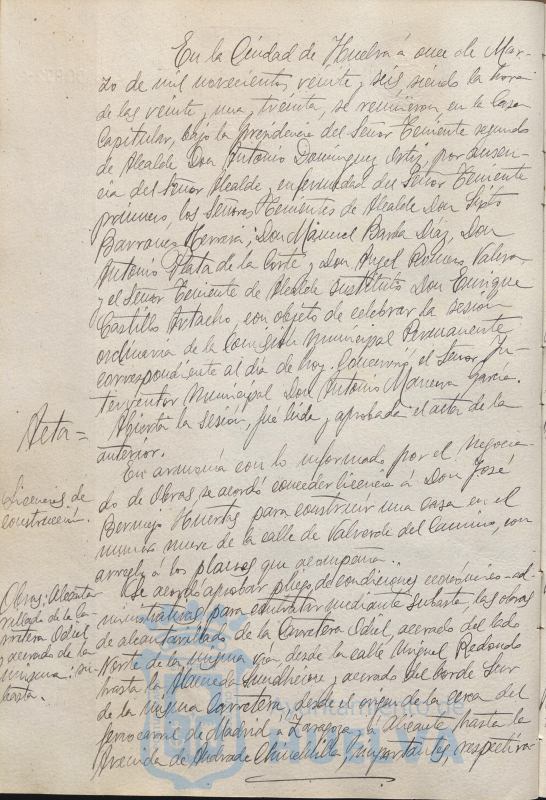 En la Ciudad de Huelva á once de Mar-
zo de mil novecientos veinte y seis siendo la hora
de las veinte y una y treinta, se reunieron en la Casa
Capitular, bajo la presidencia del Señor Teniente segundo
de Alcalde Don Antonio Dominguez Ortiz, por ausen-
cia del Señor Alcalde y enfermedad del Señor Teniente
primero, los Señores Tenientes de Alcalde Don Sixto
Barranés Herrera; Don Manuel Barba Diaz, Don
Antonio Plata de la Corte y Don Angel Romero Valera
y el Señor Teniente de Alcalde sustituto Don Enrique
Castillo Artacho, con objeto de celebrar la sesión
ordinaria de la Comisión Municipal Permanente
correspondiente al dia de hoy. Concurrió el Señor In-
terventor Municipal Don Antonio Garcia.
Acta=
Abierta la sesión, fué leida y aprobada el acta de la
anterior.
Licencias de
construcción.
En armonia con lo informado por el Negocia-
do de Obras se acordó conceder licencia á Don José
Bermejo Huertas para construir una casa en el
número nueve de la calle de Valverde del Camino, con
arreglo á los planos que acompaña..
Obras: Alcanta-
rillado de la Ca-
rretera Odiel
y acerado de la
misma: su-
basta.
Se acordó aprobar pliego de condiciones económico-ad-
ministrativas para contratar mediante subasta, las obras
de alcantarillado de la Carretera Odiel, acerado del lado
Norte de la misma via, desde la calle Miguel Redondo
hasta la Alameda Sundheim y acerado del borde Sur
de la misma Carretera, desde el origen de la cerca del
ferrocarril de Madrid á Zaragoza y á Alicante hasta la
Avenida de Andrade Chinchilla, importantes, respectiva-
Ayuntamiento de
HUELVA